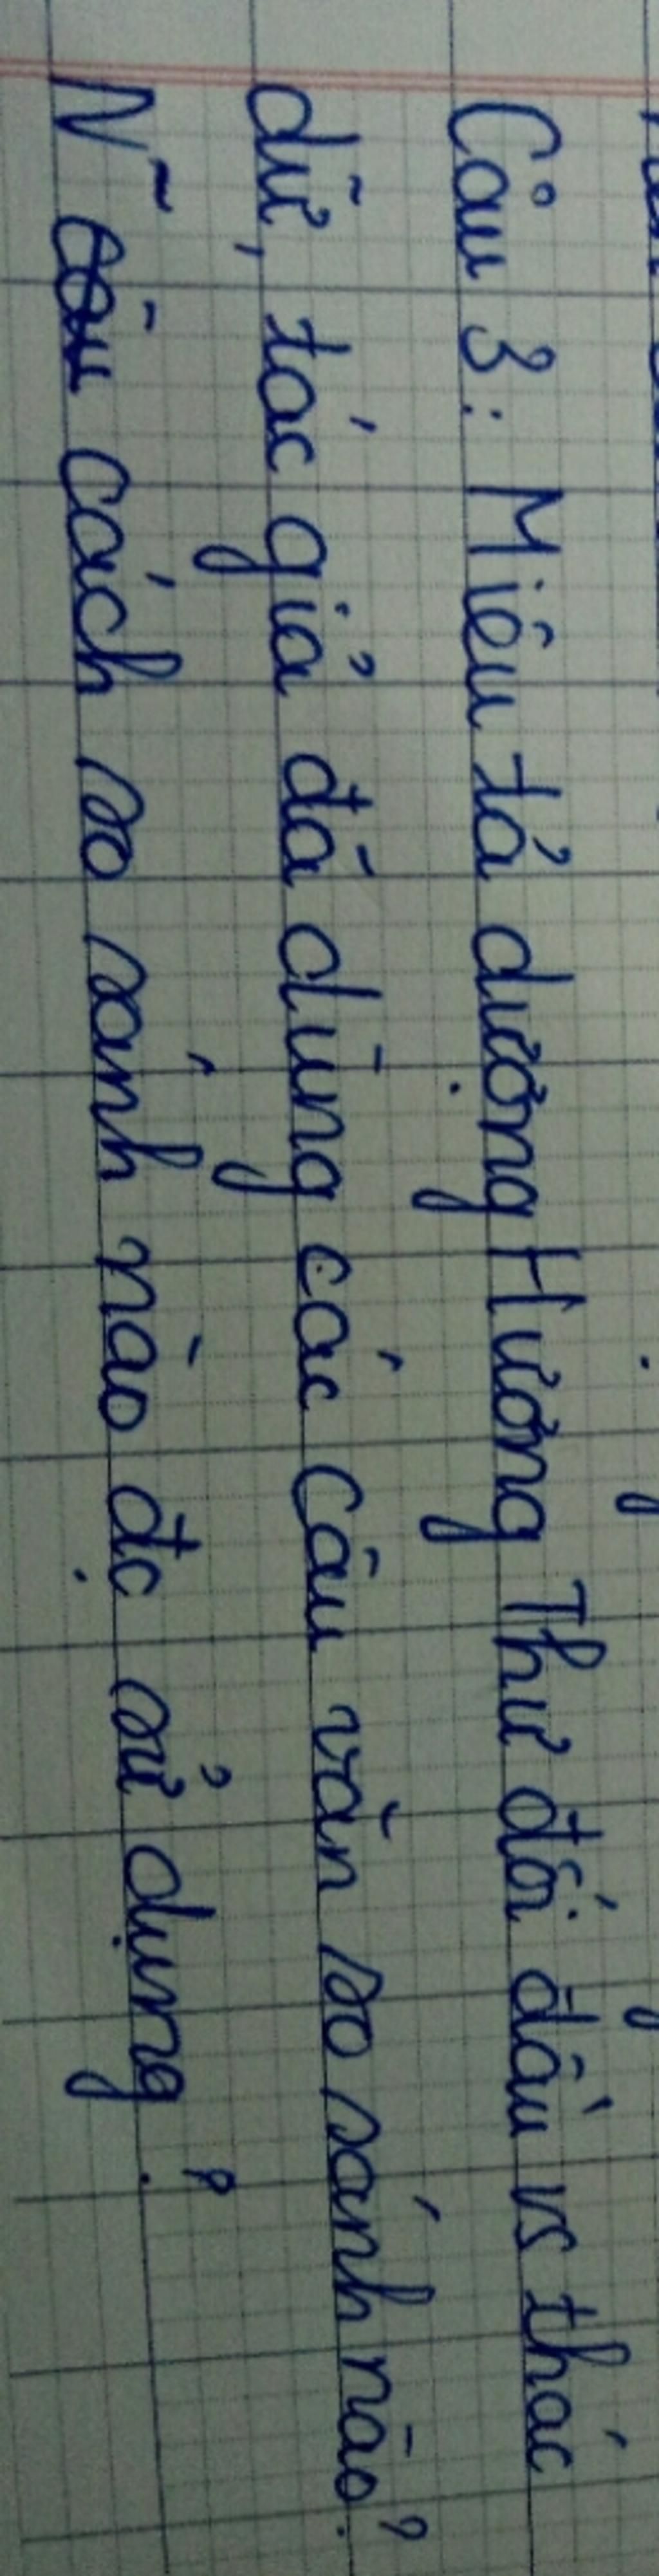 Câu 3: Miêu tả dượng Hương Thư đối đầu vs thác
dữ, tác giả đã dùng các câu văn so sánh nào?
N~ cách so sánh nào đc sử dụng?